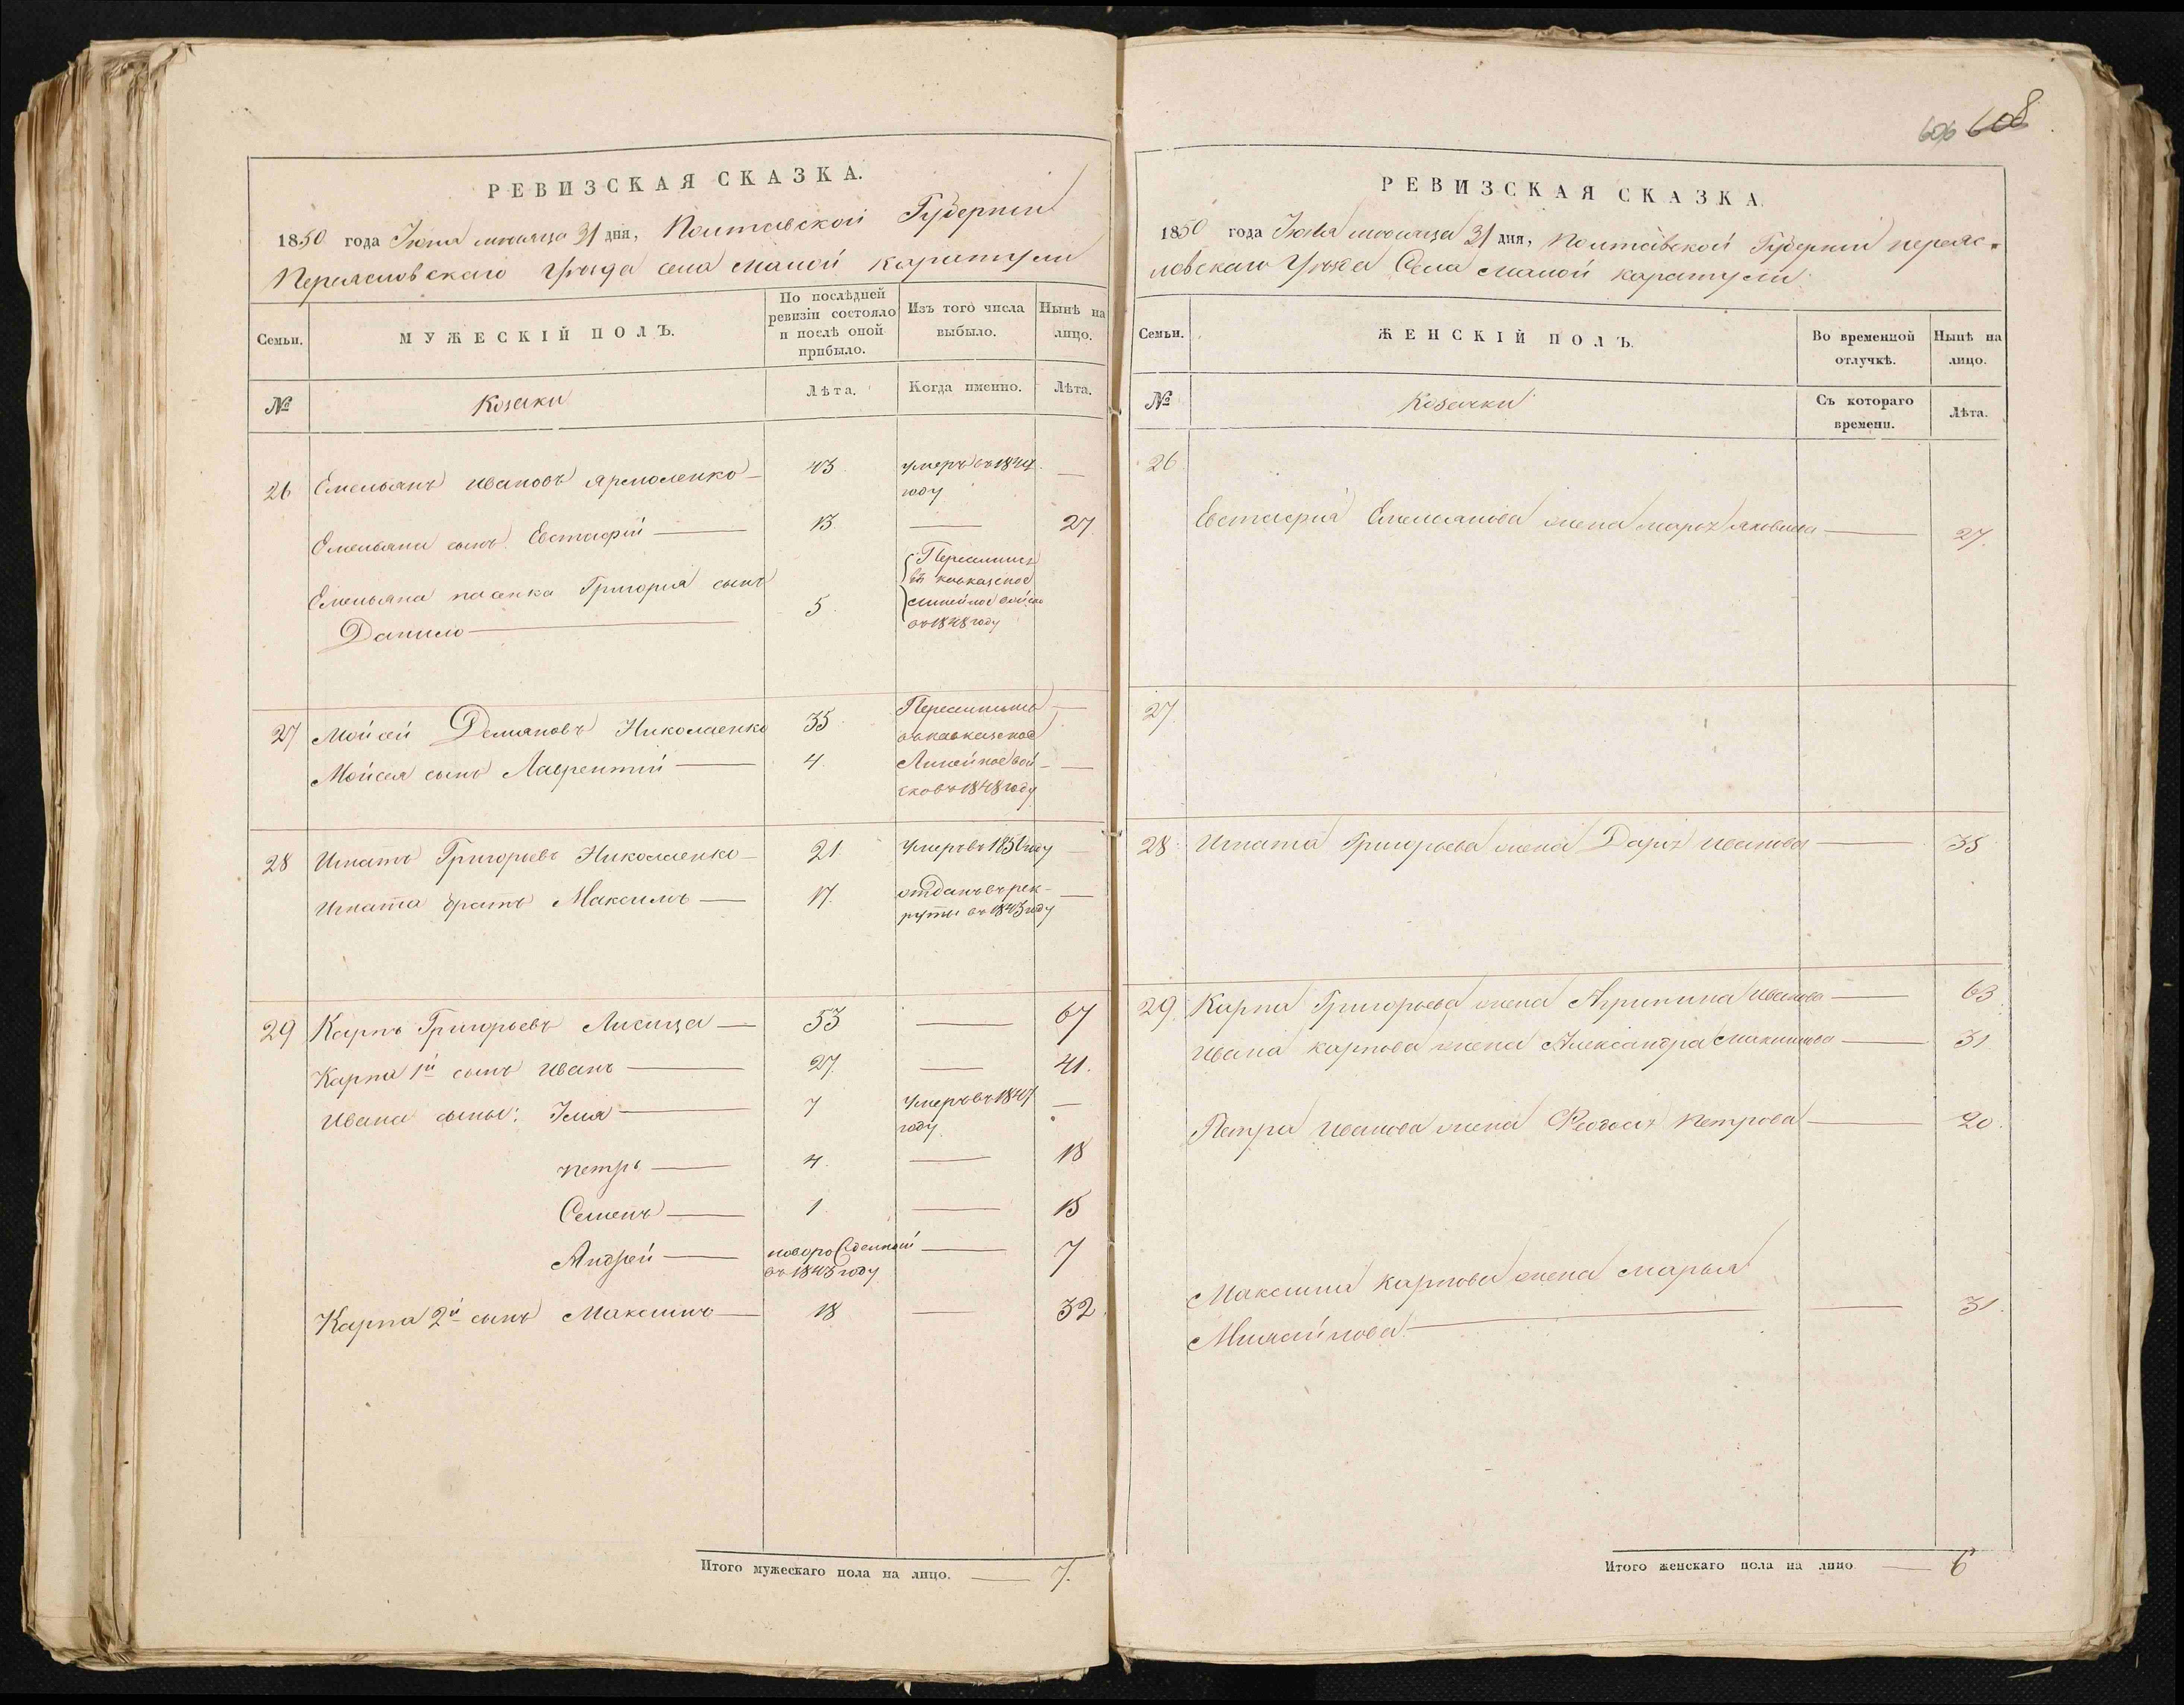 РЕВИЗСКАЯ СКАЗКА.
1850 года Июля месяца 31 дня, Полтавской Губернии
Переясловскаго Уѣзда села Малой каратули
Семьи.
МУЖЕСКІЙ ПОЛЪ.
По послѣдней ревизіи состояло и послѣ оной прибыло.
Изъ того числа выбыло.
Нынѣ на лицо.
№
Козаки
Лѣта.
Когда именно.
Лѣта.
26 Емельянъ Ивановъ Ярмоленко — 43 умеръ въ 1844 году —
Емельяна сынъ Евстафій — 13 — 27
Емельяна пасенка Григорія сынъ
Данило — 5 Переселился
въ кавказское
линейное войско
въ 1848 году
27 Мойсей Демяновъ Николаенко 35 Переселились —
Мойсея сынъ Лаврентій — 4 въ кавказское
Линейное вой-
ско въ 1848 году —
28 Игнатъ Григорьевъ Николаенко — 21 умеръ въ году —
Игната братъ Максимъ — 17. отданъ въ рек-
руты въ 1843 году —
29 Карпъ Григорьевъ Лисица — 53 — 67
Карпа 1й сынъ Иванъ — 27. — 41.
Ивана сыны: Илія — 7 умеръ въ 1847
году —
петръ — 4. — 18
Семенъ — 1 — 15
Андрей — новорожденный
въ 1843 году — 7
Карпа 2й сынъ Максимъ — 18 — 32
Итого мужескаго пола на лицо. — 7.
606 608
РЕВИЗСКАЯ СКАЗКА.
1850 года Июля месяца 31 дня, Полтавской Губернии переяс-
ловскаго Уѣзда Села Малой каратули
Семьи.
ЖЕНСКІЙ ПОЛЪ.
Во временной отлучкѣ.
Нынѣ на лицо.
№
Козачки
Съ котораго времени.
Лѣта.
26
Евстафія Емельянова жена Марья Яковлева — 27.
27.
28. Игната Григорьева жена Дарья Иванова — 35
29. Карпа Григорьева жена Агрипина Иванова — 63
Ивана карпова жена Александра — 31
Петра Иванова жена Феодосья Петрова — 20.
Максима Карпова жена Марья
— 31.
Итого женскаго пола на лицо — 6